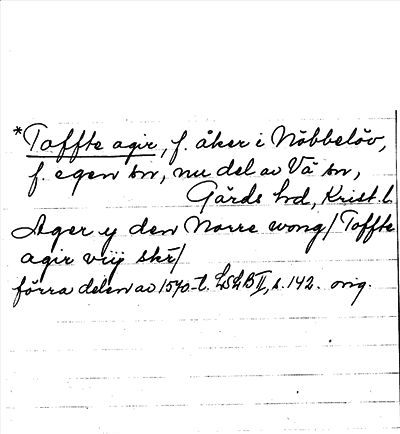 *Toffte agir, f. åker i Nöbbelöv,
f. egen sn, nu del av Vä sn,
Gärds hd, Krist. l.
Ager y den Norre wong / Toffte
agir viij skr̄ /
förra delen av 1570-t. LSLB II, s. 142. orig.